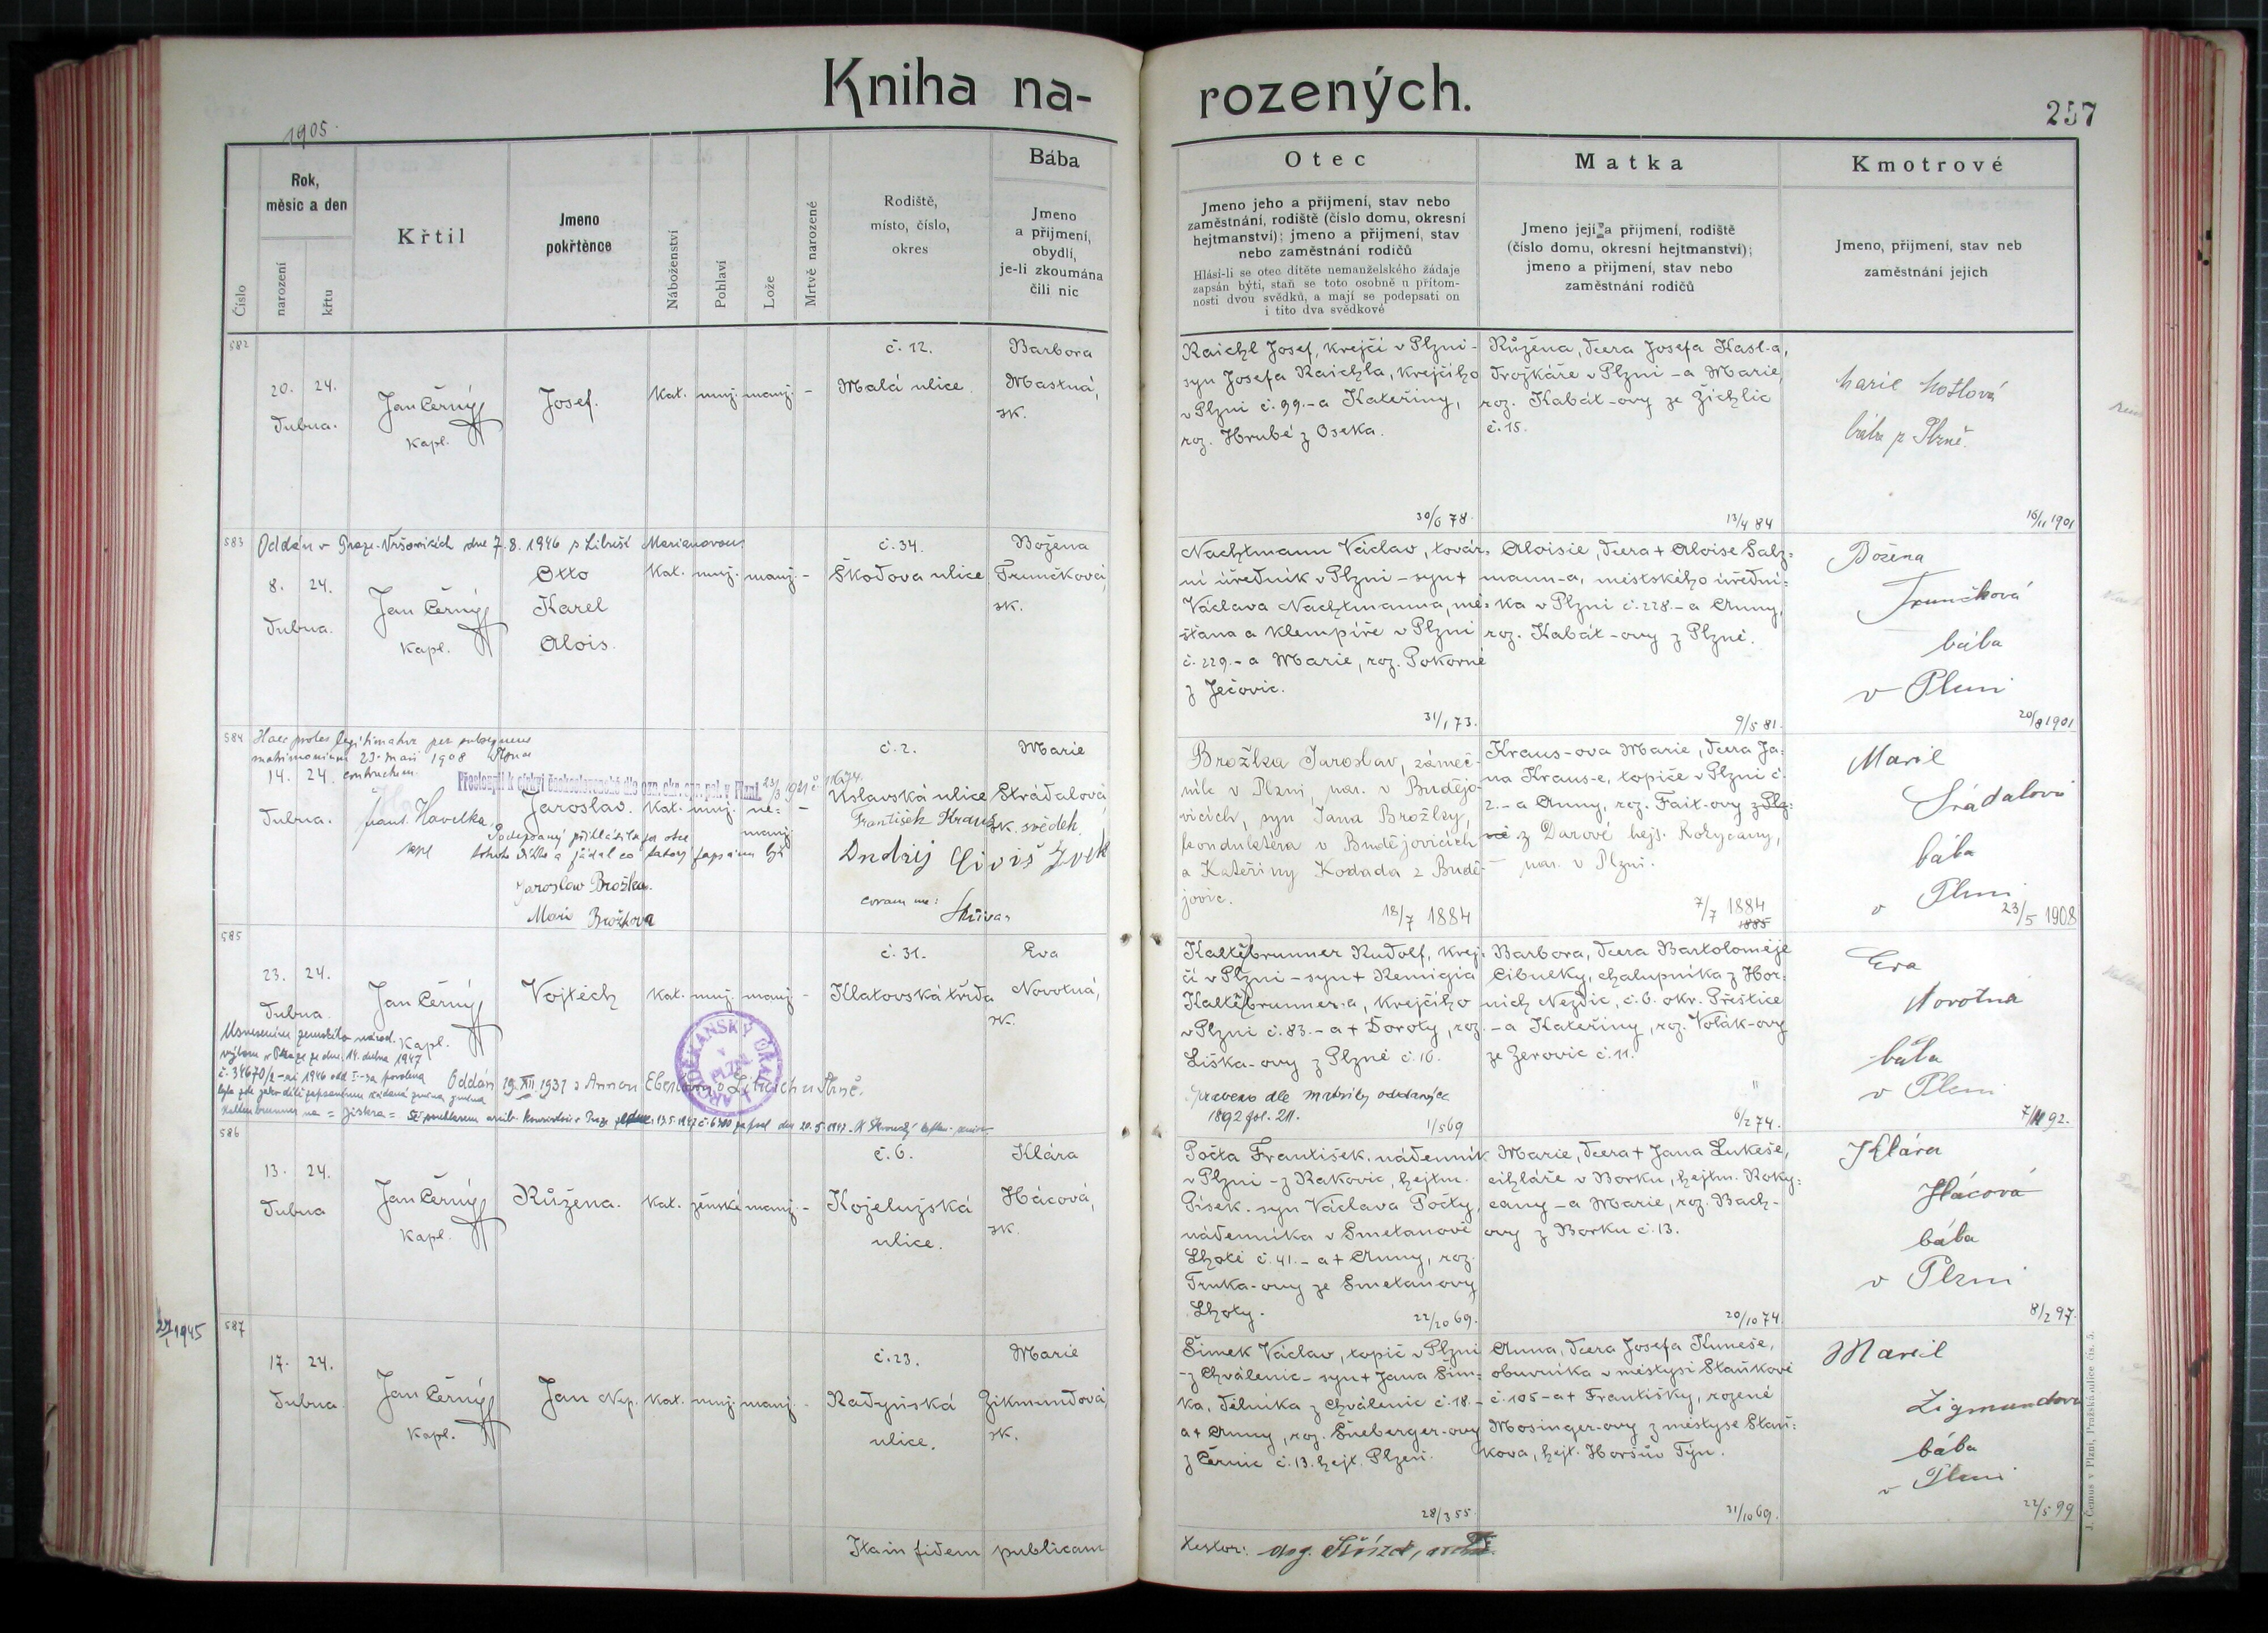 Kniha na-
rozených.
257
1905
Číslo
Rok,
měsíc a den
narození
křtu
Křtil
Jmeno
pokřtěnce
Náboženství
Pohlaví
Lože
Mrtvě narozené
Rodiště,
místo, číslo,
okres
Bába
Jmeno
a příjmení,
obydlí,
je-li zkoumána
čili nic
Otec
Jmeno jeho a přijmení, stav nebo
zaměstnání, rodiště (číslo domu, okresní
hejtmanství); jmeno a přijmení, stav
nebo zaměstnání rodičů
Hlásí-li se otec dítěte nemanželského žádaje
zapsán býti, staň se toto osobně u přítom-
nosti dvou svědků, a mají se podepsati on
i tito dva svědkové
Matka
Jmeno její a přijmení, rodiště
(číslo domu, okresní hejtmanství);
jmeno a přijmení, stav nebo
zaměstnání rodičů
Kmotrové
Jmeno, přijmení, stav neb
zaměstnání jejich
582
20. 24.
Dubna.
Jan Černý
kapl.
Josef.
kat. muž. manž. -
č. 12.
Malá ulice.
Barbora
Mastná,
zk.
Raichl Josef, krejčí v Plzni -
syn Josefa Raichla, krejčího
v Plzni č. 99. - a Kateřiny,
roz. Hrubé z Oseka.
30/6 78.
Růžena, dcera Josefa Kasl-a,
v Plzni - a Marie,
roz. Kabát-ovy ze Žichlic
č. 15.
13/4 84
bába z Plzně.
16/11 1901
583
Oddán v Praze-Vršovicích dne 7.8. 1946 s Libuší Marianovou.
8. 24.
Dubna.
Jan Černý
kapl.
Otto
Karel
Alois.
kat. muž. manž. -
č. 34.
Škodova ulice
Božena
Trunčková,
zk.
Nachtmann Václav, továr-
ní úředník v Plzni - syn +
Václava Nachtmanna, mě-
šťana a klempíře v Plzni
č. 229. - a Marie, roz. Pokorné
z Ječovic.
31/1 73.
Aloisie, dcera + Aloise Salz-
mann-a, městského úřední-
ka v Plzni č. 228. - a Anny,
roz. Kabát-ovy z Plzně.
9/5 81.
Božena
Trunčková
bába
v Plzni
20/8 1901
584
Haec proles legitimatur per subsequens
matrimonium 23. Maii 1908 Plznae
contractum.
14. 24.
Dubna.
Frant. Havelka,
kapl
Přestoupil k církvi československé dle ozn. okr. spr. pol. v Plzni 23/3 1921 č. 11674.
Jaroslav.
kat. muž. ne-
manž.
Podepsaný přihlásil se za otce
tohoto dítka a žádal co takový zapsán býti
Jaroslav Brožka.
Marie Brožková
č. 2.
Úslavská ulice
svědek.
Ondřej
coram me:
Marie
Strádalová,
zk.
Brožka Jaroslav, zámeč-
ník v Plzni, nar. v Budějo-
vicích, syn Jana Brožky,
konduktéra v Budějovicích
a Kateřiny Kodada z Budě-
jovic.
18/7 1884
Kraus-ova Marie, dcera Ja-
na Kraus-e, topiče v Plzni č.
2. - a Anny, roz. Fait-ovy z Plz-
ně z Darové hejt. Rokycany,
- nar. v Plzni.
7/7 1884
1885
Marie
Strádalová
bába
v Plzni
23/5 1908
585
23. 24.
Dubna.
Jan Černý
kapl.
Vojtěch
kat. muž. manž. -
č. 31.
Klatovská třída
Eva
Novotná,
zk.
Usnesením zemského národ.
výboru v Praze ze dne 14. dubna 1947
č. 34670/2 - 1946 odd. I-3a povolena
= Jiskra =
Oddán 19. XII 1931 s Annou v Liticích u Plzně.
ARCIDĚKANSKÝ ÚŘAD
V
PLZNI
Kaltenbrunner Rudolf, krej-
čí v Plzni - syn + Remigia
Kaltenbrunner-a, krejčího
v Plzni č. 83. - a + Doroty, roz.
Liška-ovy z Plzně č. 10.
Opraveno dle matriky oddaných
1892 fol. 211.
1/5 69
Barbora, dcera Bartoloměje
Cibulky, chalupníka z Hor-
ních Nezdic, č. 6. okr. Přeštice
- a Kateřiny, roz. Volák-ovy
ze Zerovic č. 11.
6/2 74.
Eva
Novotna
bába
v Plzni
7/11 92.
586
13. 24.
Dubna
Jan Černý
kapl.
Růžena.
kat. ženské manž. -
č. 6.
Koželužská
ulice.
Klára
Hácová,
zk.
Počta František, nádenník
v Plzni - z Rakovic, hejtm.
Písek. syn Václava Počty,
nádenníka v Smetanově
Lhotě č. 41. - a + Anny, roz.
Trnka-ovy ze Smetanovy
Lhoty.
22/10 69.
Marie, dcera + Jana Lukeše,
cihláře v Borku, hejtm. Roky-
cany - a Marie, roz. Bach-
ovy z Borku č. 13.
20/10 74.
Klára
Hácová
bába
v Plzni
8/2 97.
1945
587
17. 24.
Dubna.
Jan Černý
kapl.
Jan Nep.
kat. muž. manž. -
č. 23.
Radyňská
ulice.
Marie
Zikmundová,
zk.
Šimek Václav, topič v Plzni
- z Chválenic - syn + Jana Šim-
ka, dělníka z Chválenic č. 18. -
a + Anny, roz. Šneberger-ovy
z Černic č. 13. hejt. Plzeň.
28/3 55.
Anna, dcera Josefa Kuneše,
obuvníka v městysi Staňkově
č. 105 - a + Františky, rozené
Mosinger-ovy z městyse Staň-
kova, hejt. Horšův Týn.
31/10 69.
Marie
Zigmundova
bába
v Plzni
22/5 99
Ita in fidem publicam
testor:
J. Čemus v Plzni, Pražská ulice čís. 5.